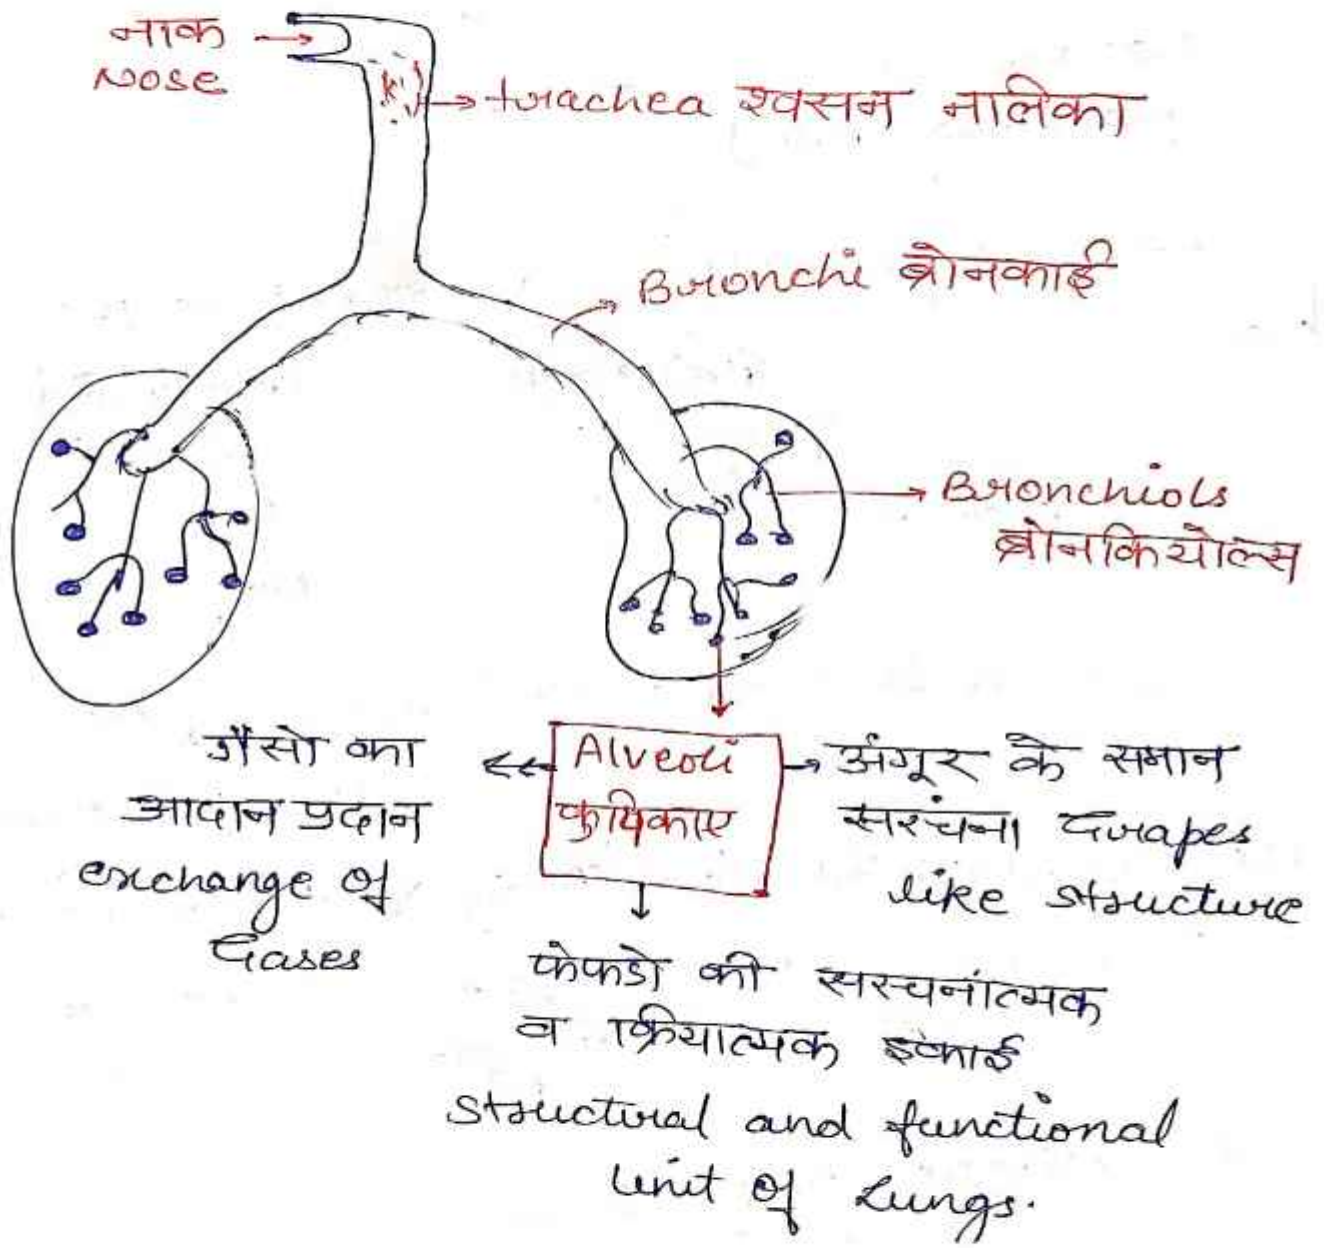 नाक
Nose
trachea श्वसन नालिका
Bronchi ब्रोनकाई
Bronchiols
ब्रोनकियोल्स
गैसो का
आदान प्रदान
exchange of
Gases
Alveoli
कुपिकाए
अंगूर के समान
सरंचना Grapes
like structure
फेफडो की सरचनांत्मक
व क्रियात्मक इकाई
Structural and functional
Unit of Lungs.